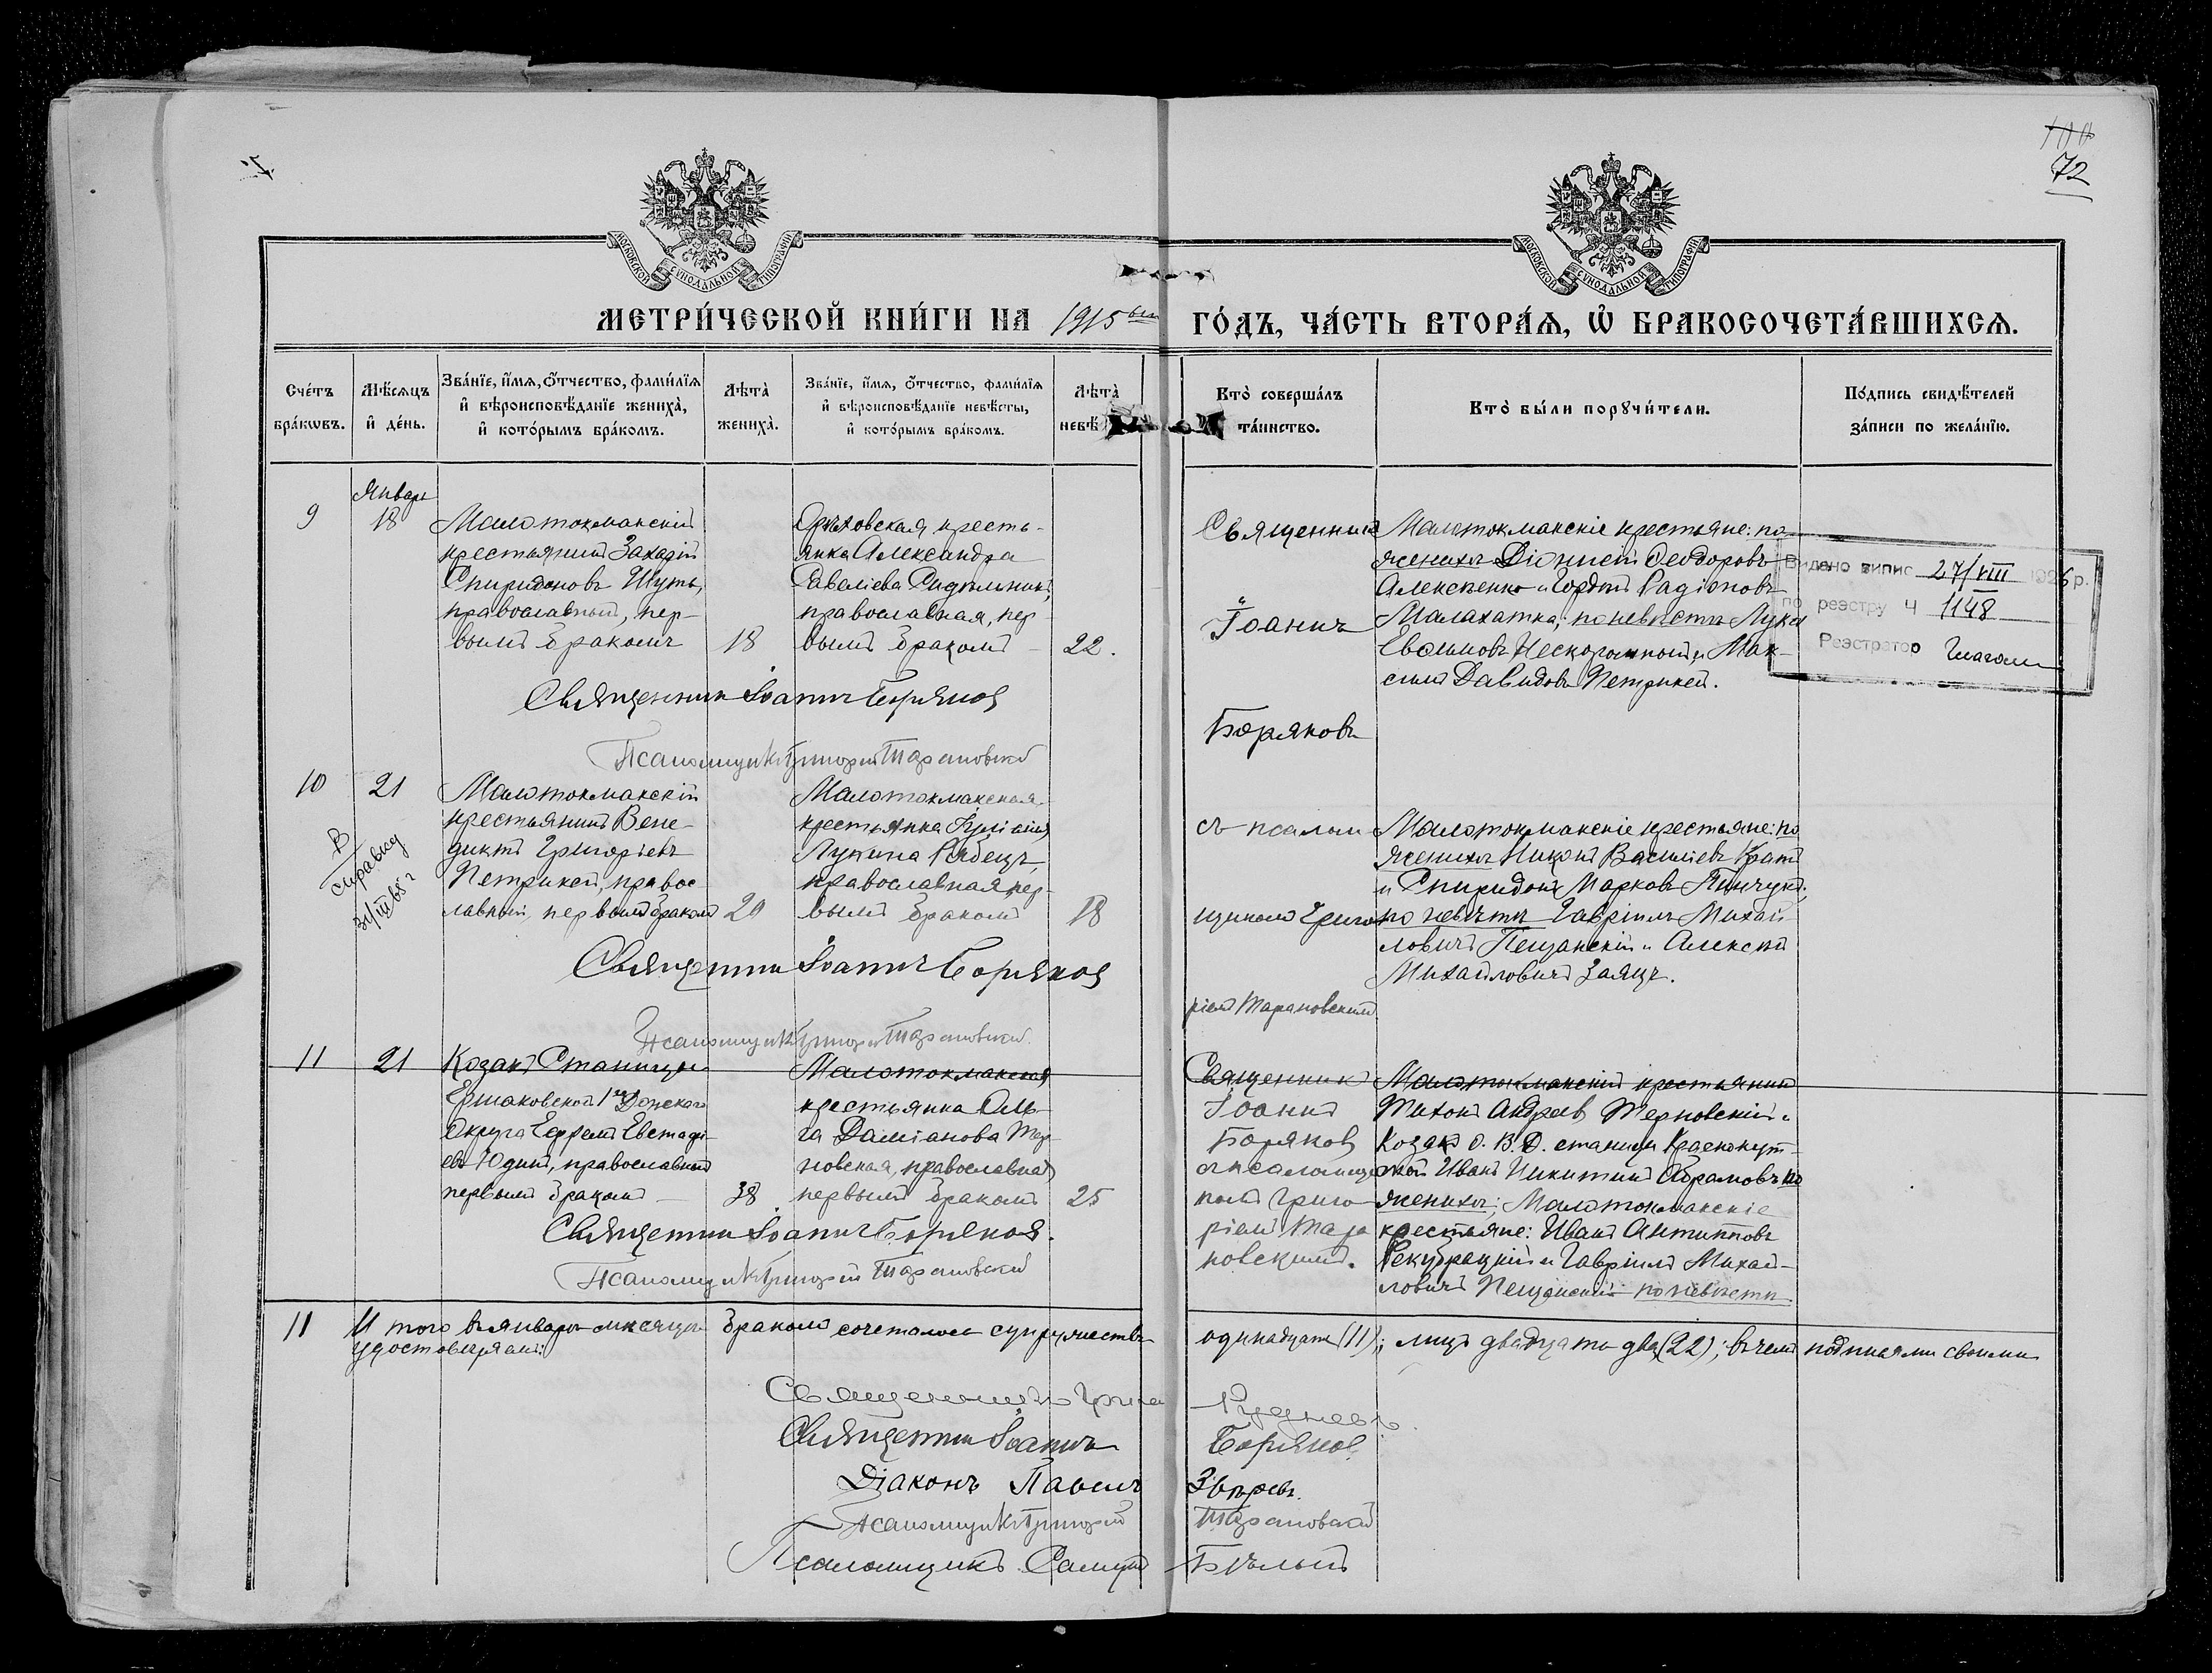 100
72
МОСКОВСКОЙ СУНОДАЛЬНОЙ ТИПОГРАФІИ
МОСКОВСКОЙ СУНОДАЛЬНОЙ ТИПОГРАФІИ
МЕТРИ́ЧЕСКОЙ КНИ́ГИ НА 1915ый ГО́ДЪ, ЧА́СТЬ ВТОРА́Ѧ, Ѽ БРАКОСОЧЕТА́ВШИХСѦ.
Сче́тъ бра́кѡвъ.
Мѣ́сѧцъ и҆ де́нь.
Зва́нїе, и҆́мѧ, ѻ҆́тчество, фами́лїѧ
и҆ вѣроисповѣ́данїе жениха̀,
и҆ кото́рымъ бра́комъ.
Лѣта̀ жениха̀.
Зва́нїе, и҆́мѧ, ѻ҆́тчество, фами́лїѧ
и҆ вѣроисповѣ́данїе невѣ́сты,
и҆ кото́рымъ бра́комъ.
Лѣта̀ невѣ
Кто̀ соверша́лъ та́инство.
Кто̀ бы́ли порꙋчи́тели.
По́дпись свидѣ́телей
за́писи по жела́нїю.
9
Январь
18
Малотокмакскій
крестьянинъ Захарій
Спиридоновъ Шуть,
православный, пер-
вымъ бракомъ
18
Орѣховская кресть-
янка Александра
Савеліева
православная, пер-
вымъ бракомъ
22.
Священникъ
Іоаннъ
Боряковъ
Малотокмакскіе крестьяне: по
женихѣ Діонисій Ѳеодоровъ
Алексѣенко и Гордѣй Радіоновъ
Малахатка; по невѣстѣ Лука
Евѳимовъ Нескоромный и Мак-
симъ Давидовъ Петрикей.
Видано випис 27/VIII 1926 р.
по реэстру Ч 1148
Реэстратор
Священник Іоаннъ Боряковъ
Псаломщикъ Григорій Тарановскій
10
21
В
справку
31/III 65 г
Малотокмакскій
крестьянинъ Вене-
диктъ Григорьевъ
Петрикей, правос-
лавный, первымъ бракомъ
20
Малотокмакская
крестьянка Іуліанія
Лукина Рябецъ,
православная, пер-
вымъ бракомъ
18
съ псалом-
щикомъ Григо-
ріемъ Тарановскимъ
Малотокмакскіе крестьяне: по
женихѣ Никонъ Василіевъ
и Спиридонъ Марковъ Пинчукъ;
по невѣстѣ Гавріилъ Михай-
ловичъ Пещанскій и Алексѣй
Михайловичъ Заяцъ.
Священник Іоаннъ Боряковъ
Псаломщикъ Григорій Тарановскій
11
21
Козакъ Станицы
Ермаковской 1го Донского
Округа Ефремъ Евстафі-
евъ Юдинъ, православный
первымъ бракомъ
38
Малотокмакская
крестьянка Оль-
га Даміанова Тер-
новская, православная
первымъ бракомъ
25
Священник
Іоаннъ
Боряковъ
съ псаломщи-
комъ Григо-
ріемъ Тара
новскимъ.
Малотокмакскій крестьянинъ
Тихонъ Андреев Терновскій и
Козакъ О. В. Д. станицы Краснокут-
ской Иванъ Никитинъ Абрамовъ по
женихѣ; Малотокмакскіе
крестьяне: Иванъ Антиповъ
и Гавріилъ Михай-
ловичъ Пещанскій по невѣстѣ.
Священник Іоаннъ Боряковъ.
Псаломщикъ Григорій Тарановскій
11
И того въ январѣ мѣсяцѣ бракомъ сочеталось супружествъ одинадцать (11); лицъ двадцать два (22); въ чемъ подписями своими
удостовѣряемъ:
Священникъ Рудневъ.
Священник Іоаннъ Боряков
Діаконъ Павелъ Звѣревъ.
Псаломщикъ Григорій Тарановскій
Псаломщикъ Самуилъ Бѣлый